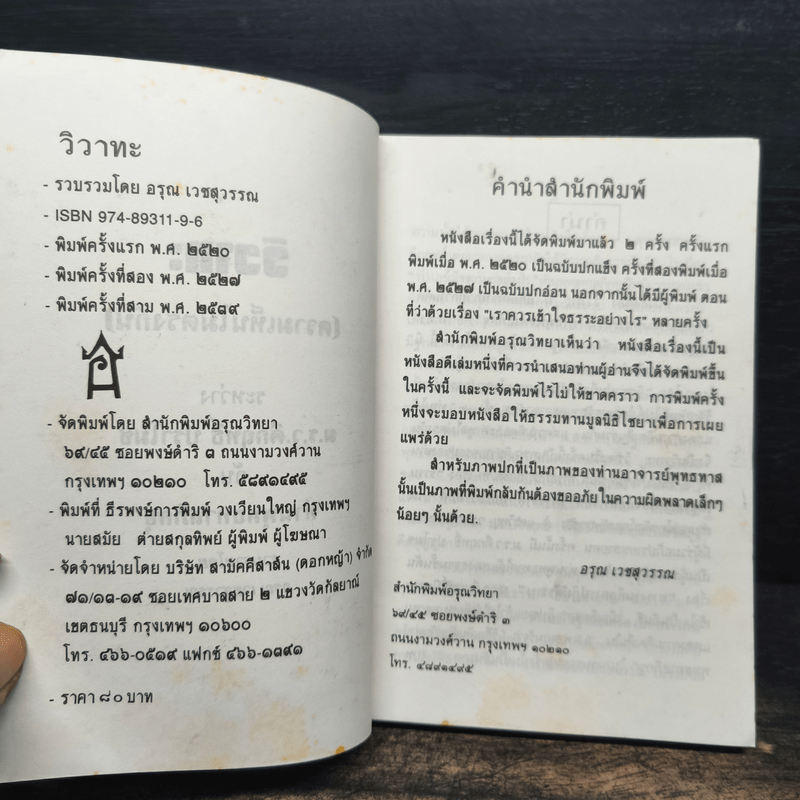 วิวาทะ
- รวบรวมโดย อรุณ เวชสุวรรณ
- ISBN 974-89311-9-6
- พิมพ์ครั้งแรก พ.ศ. ๒๕๒๐
- พิมพ์ครั้งที่สอง พ.ศ. ๒๕๒๗
- พิมพ์ครั้งที่สาม พ.ศ. ๒๕๓๙
- จัดพิมพ์โดย สำนักพิมพ์อรุณวิทยา
๖๙/๔๕ ซอยพงษ์ดำริ ๓ ถนนงามวงศ์วาน
กรุงเทพฯ ๑๐๒๑๐ โทร. ๕๘๙๑๔๙๕
- พิมพ์ที่ ธีรพงษ์การพิมพ์ วงเวียนใหญ่ กรุงเทพฯ
นายสมัย ต่ายสกุลทิพย์ ผู้พิมพ์ ผู้โฆษณา
- จัดจำหน่ายโดย บริษัท สามัคคีสาส์น (ดอกหญ้า) จำกัด
๗๑/๑๓-๑๙ ซอยเทศบาลสาย ๒ แขวงวัดกัลยาณ์
เขตธนบุรี กรุงเทพฯ ๑๐๖๐๐
โทร. ๔๖๖-๐๕๑๙ แฟกซ์ ๔๖๖-๑๓๙๑
- ราคา ๘๐ บาท
คำนำสำนักพิมพ์
หนังสือเรื่องนี้ได้จัดพิมพ์มาแล้ว ๒ ครั้ง ครั้งแรก
พิมพ์เมื่อ พ.ศ. ๒๕๒๐ เป็นฉบับปกแข็ง ครั้งที่สองพิมพ์เมื่อ
พ.ศ. ๒๕๒๗ เป็นฉบับปกอ่อน นอกจากนั้นได้มีผู้พิมพ์ ตอน
ที่ว่าด้วยเรื่อง "เราควรเข้าใจธรระอย่างไร" หลายครั้ง
สำนักพิมพ์อรุณวิทยาเห็นว่า หนังสือเรื่องนี้เป็น
หนังสือดีเล่มหนึ่งที่ควรนำเสนอท่านผู้อ่านจึงได้จัดพิมพ์ขึ้น
ในครั้งนี้ และจะจัดพิมพ์ไว้ไม่ให้ขาดคราว การพิมพ์ครั้ง
หนึ่งจะมอบหนังสือให้ธรรมทานมูลนิธิไชยาเพื่อการเผย
แพร่ด้วย
สำหรับภาพปกที่เป็นภาพของท่านอาจารย์พุทธทาส
นั้นเป็นภาพที่พิมพ์กลับกันต้องขออภัยในความผิดพลาดเล็กๆ
น้อยๆ นั้นด้วย.
อรุณ เวชสุวรรณ
สำนักพิมพ์อรุณวิทยา
๖๙/๔๕ ซอยพงษ์ดำริ ๓
ถนนงามวงศ์วาน กรุงเทพฯ ๑๐๒๑๐
โทร. ๔๘๙๑๔๙๕